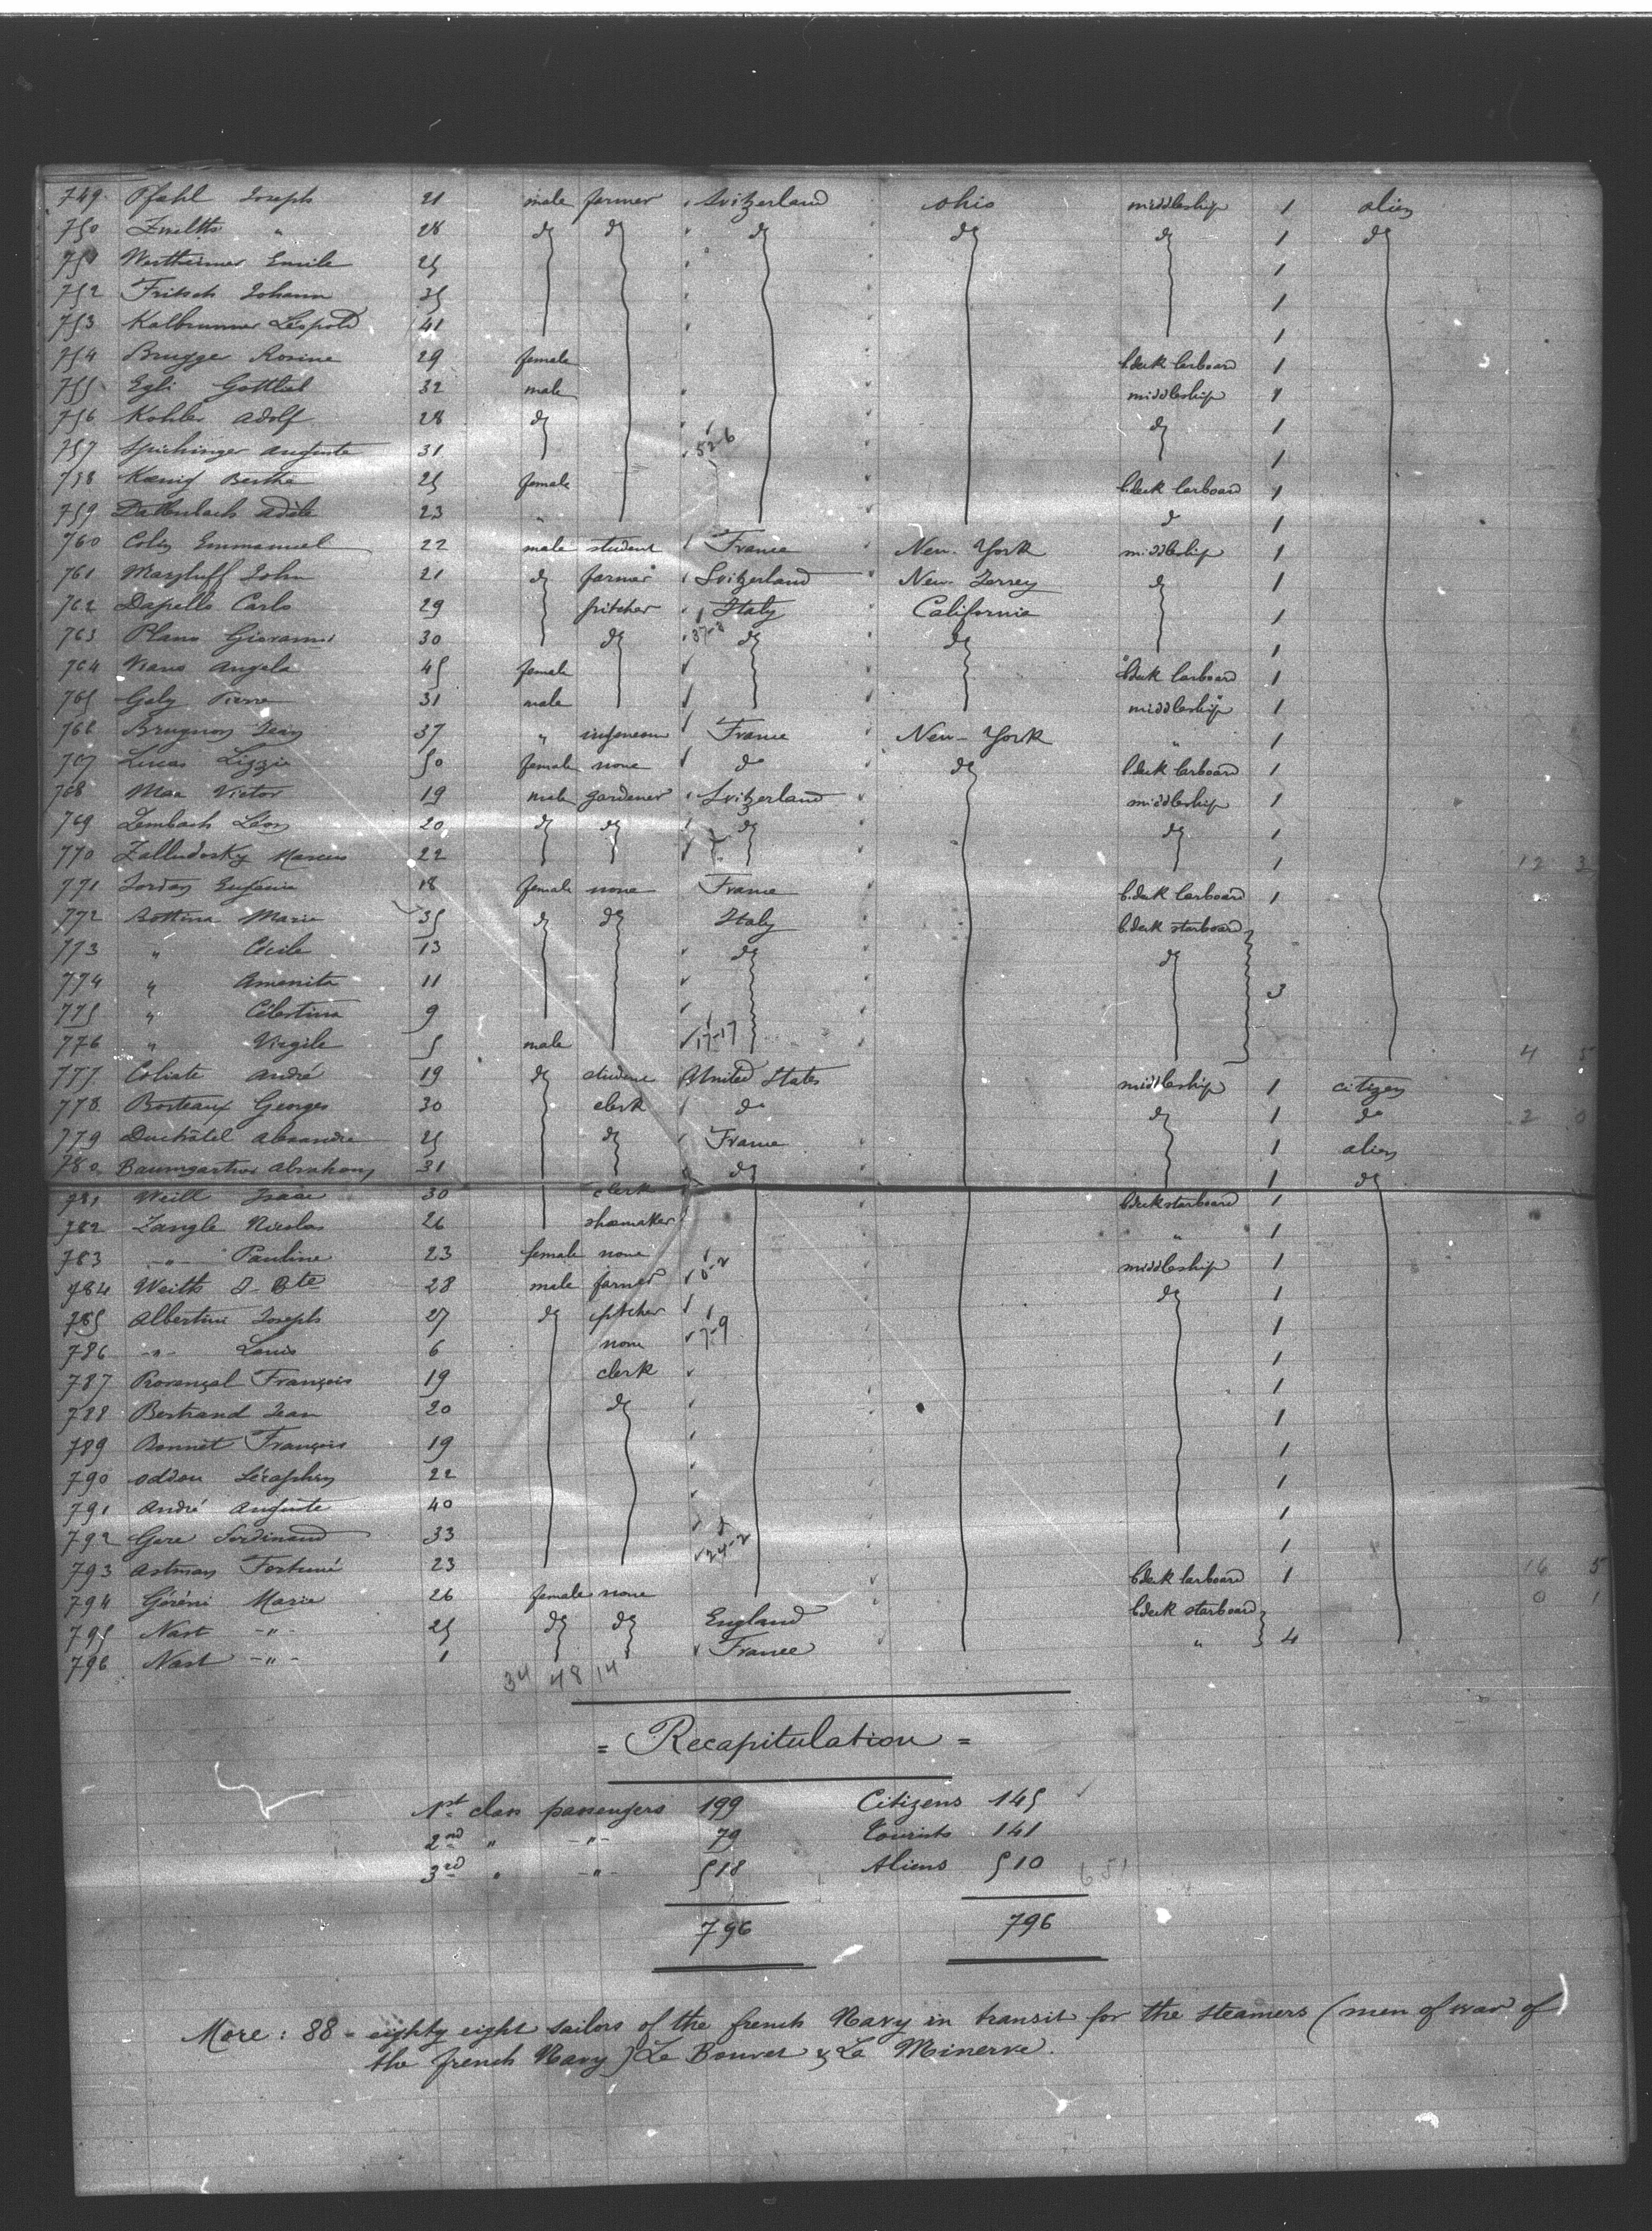 749 Pfahl Joseph 21 male farmer Svitzerland ohio middleship 1 alien
750 " 28 do do do do do 1 do
751 Wertheimer Emile 25 1
752 Fritsch Johann 35 1
753 Kalbrunner Léopold 41 1
754 Brugger Rosine 29 female b.deck larboard 1
755 Egli Gottlieb 32 male middleship 1
756 Kohler Adolf 28 do do 1
757 Auguste 31 526 1
758 Kœnig Berthe 25 female b.deck larboard 1
759 Adèle 23 " d 1
760 Colin Emmanuel 22 male student France New-York middleship 1
761 John 21 do farmer Svitzerland New-Jersey do 1
762 Dapello Carlo 29 pitcher Italy California 1
763 Plano Giovanni 30 do 37-3 do do 1
764 Angela 45 female b.deck larboard 1
765 Galy Pierre 31 male middleship 1
766 Brugnon Jean 37 " ingeneour France New-York " 1
767 Lucas Lizzie 50 female none do do b.deck larboard 1
768 Mae Victor 19 male gardener Svitzerland middleship 1
769 Lembach Léon 20 do do do do 1
770 22 1 12 3
771 Jordan Eugénie 18 female none France b.deck larboard 1
772 Bottina Marie 35 do do Italy b.deck starboard
773 " Cécile 13 do do
774 " Amenita 11 3
775 " Célestina 9
776 " Virgile 5 male 17-17 4 5
777 Coliate André 19 do student United States middleship 1 citizen
778 Borteaux Georges 30 clerk do do 1 do 2 0
779 Duchâtel Alexandre 25 do France 1 alien
780 Baumgartner Abraham 31 do 1 do
781 Weill Isaac 30 clerk b.deck starboard 1
782 Zangle Nicolas 26 shœmaker " 1
783 -"- Pauline 23 female none middleship 1
784 Weith J-Bte 28 male farmer 6-2 do 1
785 Albertini Joseph 27 do pitcher 1
786 -"- Louis 6 none 7-9 1
787 Provençal François 19 clerk 1
788 Bertrand Jean 20 do 1
789 Bonnet François 19 1
790 oddou Séraphin 22 1
791 André Auguste 40 1
792 Gere Ferdinand 33 1
793 Astman Fortuné 23 24-2 b.deck larboard 1 16 5
794 Marie 26 female none b.deck starboard 0 1
795 Nast -"- 25 do do England " 4
796 Nast -"- 1 France
34 48 14
= Recapitulation =
1st class passengers 199 Citizens 145
2nd " -"- 79 Tourists 141
3rd " -"- 518 Aliens 510 651
796 796
More: 88 - eighty eight sailors of the french Navy in transit for the steamers (men of war of
the french Navy) Le Bouvet & La Minerve.